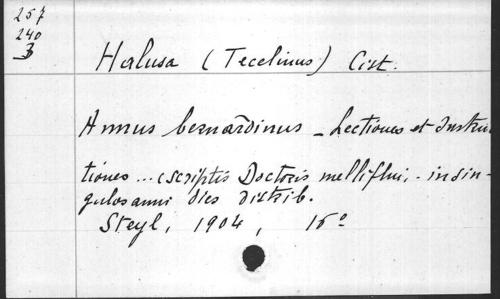 257
240
3
Halusa (Tecelinus) Cist.
Annus bernardinus - Lectiones et Instruc
tiones... (scriptis Doctoris melliflui, - in sin-
gulos anni dies distrib.
Steyl, 1904, 16°